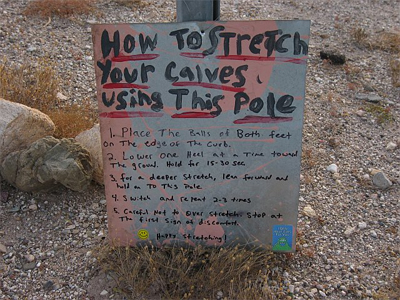 How To Stretch
Your Calves
Using This Pole
1. Place The Balls of Both feet
on The edge of The Curb.
2. Lower one Heel at a Time toward
The ground. Hold for 15-30 sec
3. for a deeper stretch, lean forward and
hold on To This Pole.
4. Switch and repeat 2-3 times
5. Careful Not to Over Stretch. Stop at
The first Sign of discomfort.
Happy Stretching!